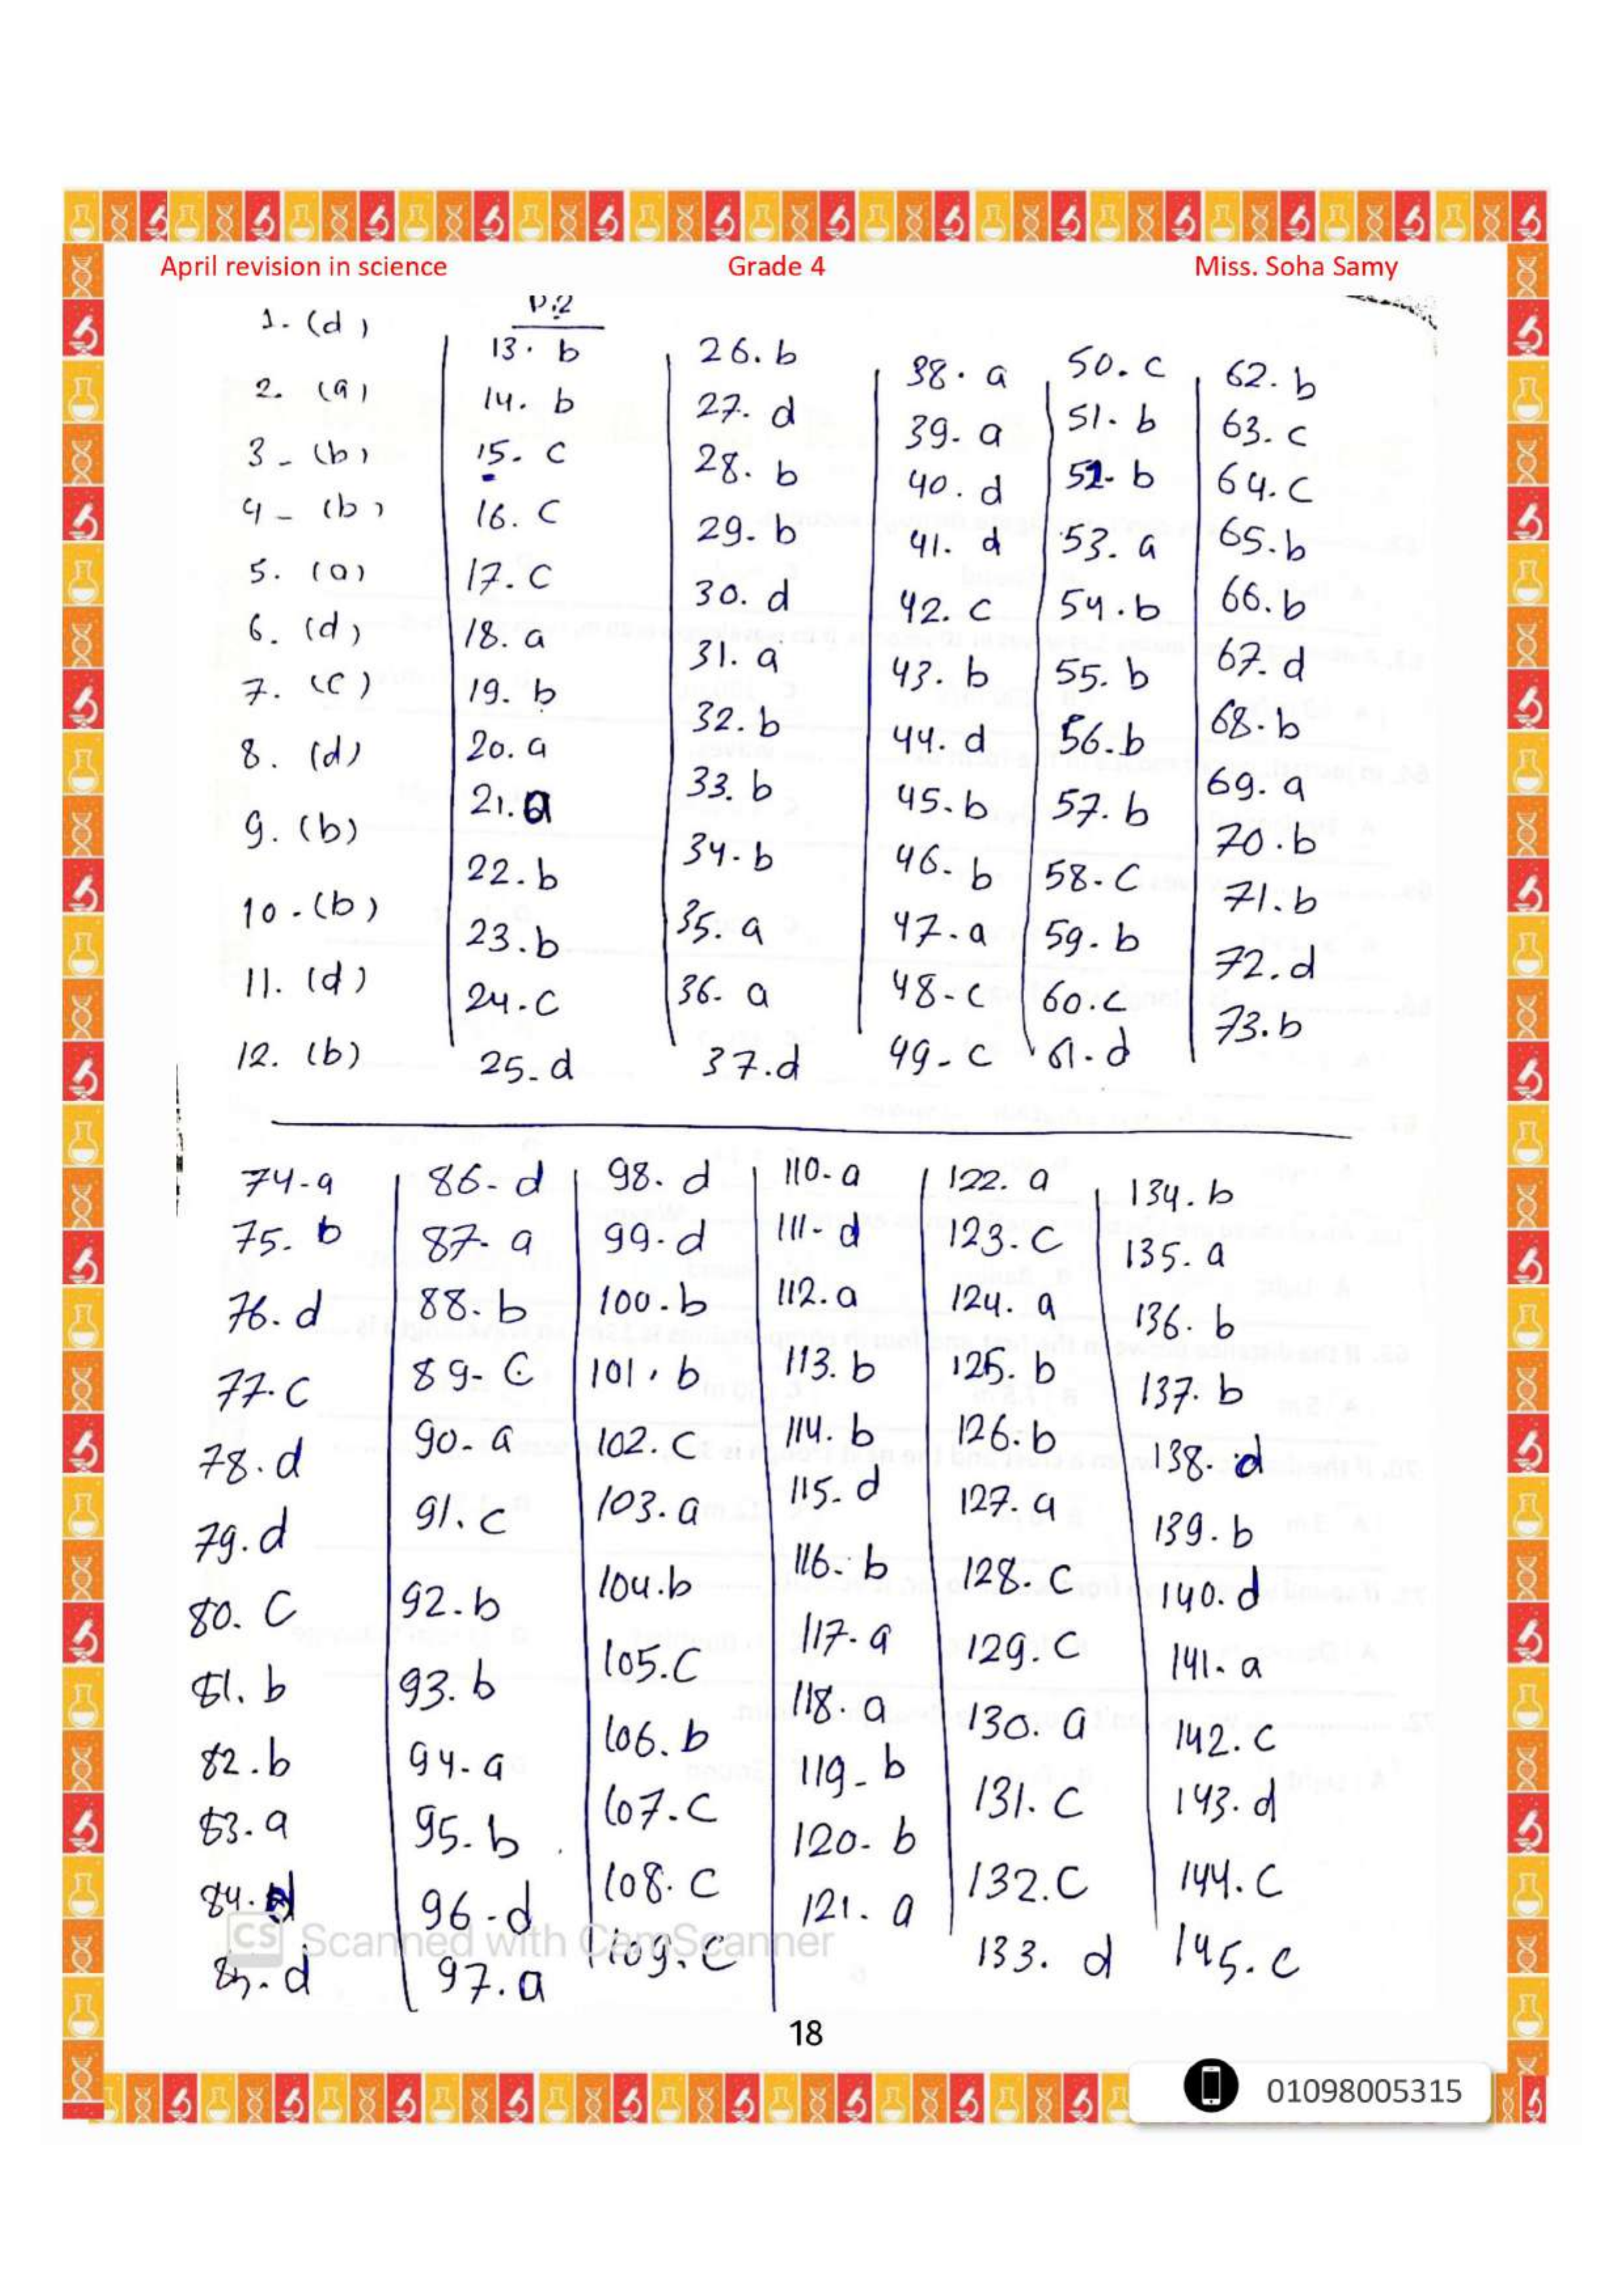 April revision in science Grade 4 Miss. Soha Samy
1. (d)
2. (a)
3- (b)
4- (b)
5. (a)
6. (d)
7. (c)
8. (d)
9. (b)
10.(b)
11. (d)
12. (b)
P.2
13. b
14. b
15. c
16. c
17. c
18. a
19. b
20. a
21. a
22. b
23. b
24. c
25. d
26. b
27. d
28. b
29. b
30. d
31. a
32. b
33. b
34. b
35. a
36. a
37. d
38. a
39. a
40. d
41. d
42. c
43. b
44. d
45. b
46. b
47. a
48. c
49. c
50. c
51. b
52. b
53. a
54. b
55. b
56. b
57. b
58. c
59. b
60. c
61. d
62. b
63. c
64. c
65. b
66. b
67. d
68. b
69. a
70. b
71. b
72. d
73. b
74-a
75. b
76. d
77. c
78. d
79. d
80. c
81. b
82. b
83. a
84. d
85. d
86- d
87- a
88- b
89- c
90- a
91. c
92. b
93. b
94. a
95. b
96-d
97. a
98. d
99. d
100. b
101. b
102. c
103. a
104. b
105. c
106. b
107. c
108. c
109. c
110- a
111- d
112. a
113. b
114. b
115. d
116. b
117. a
118. a
119- b
120- b
121. a
122. a
123. c
124. a
125. b
126. b
127. a
128. c
129. c
130. a
131. c
132. c
133. d
134. b
135. a
136. b
137. b
138. d
139. b
140. d
141. a
142. c
143. d
144. c
145. c
CS Scanned with CamScanner
18
01098005315